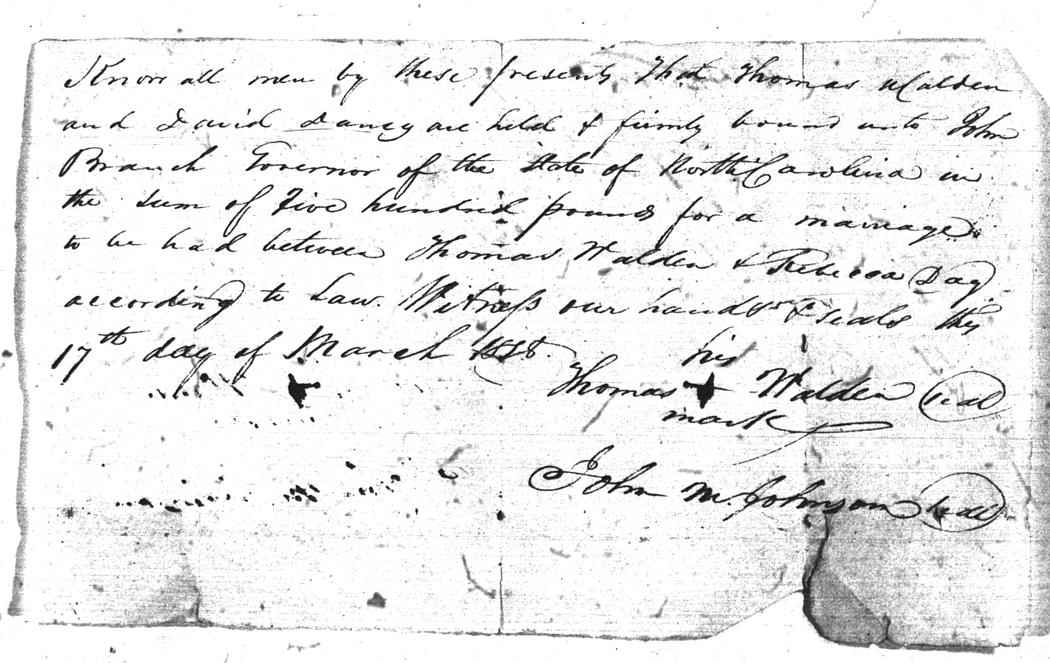 Know all men by these presents That Thomas Walden
and David Dancy are held & firmly bound unto John
Branch Governor of the State of North Carolina in
the sum of Five hundred pounds for a mariage
to be had between Thomas Walden & Rebecca Day
according to Law. Witness our hands & seals this
17th day of March 1818.
his
Thomas + Walden (seal)
mark
John M. Johnson (seal)